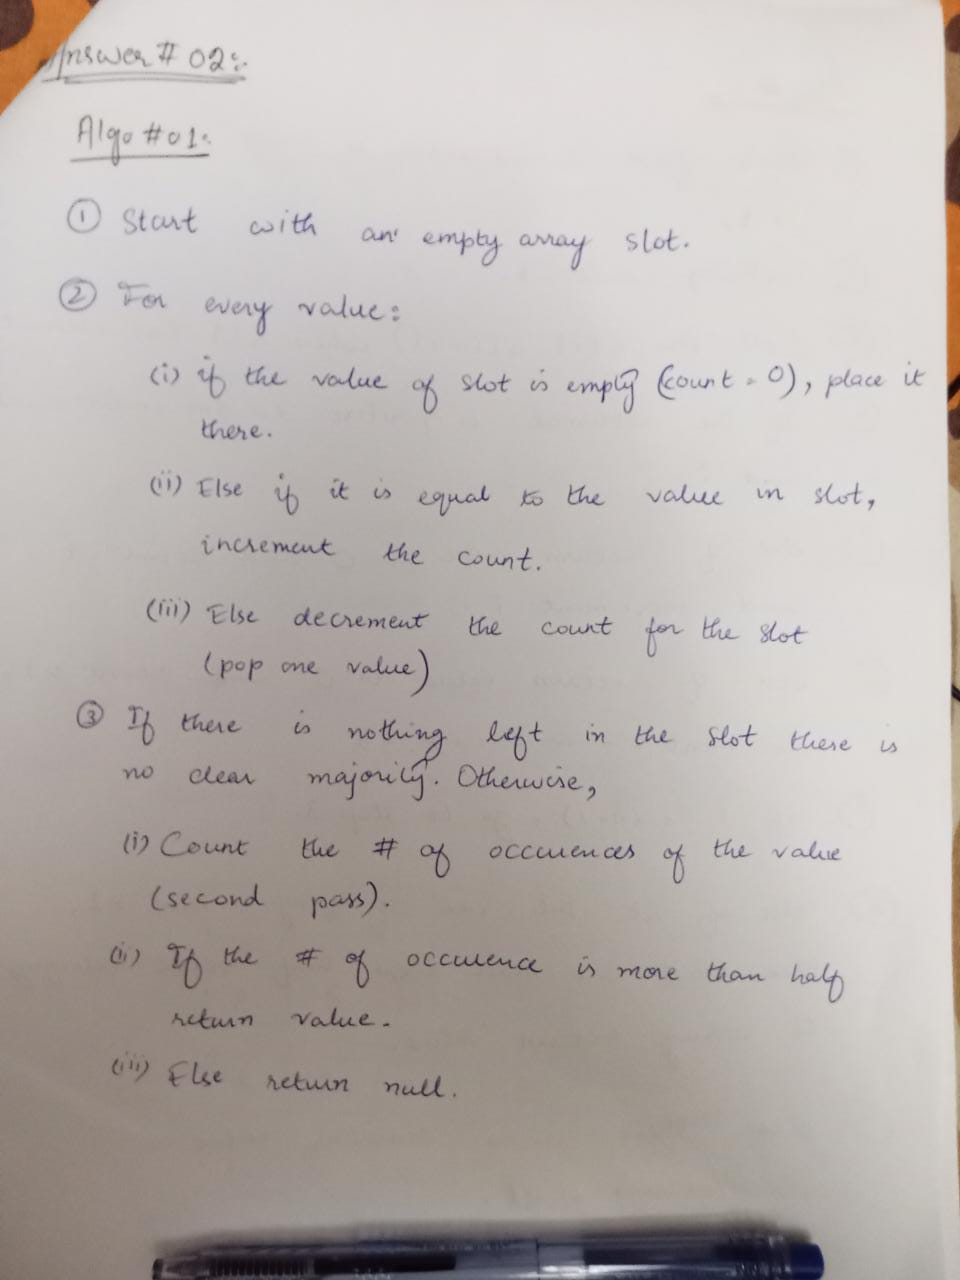 Answer # 02:-
Algo #01:
① Start with an empty array slot.
② For every value:
(i) if the value of slot is empty (count = 0), place it
there.
(ii) Else if it is equal to the value in slot,
increment the count.
(iii) Else decrement the count for the slot
(pop one value)
③ If there is nothing left in the slot there is
no clear majority. Otherwise,
(i) Count the # of occurences of the value
(second pass).
(ii) If the # of occurence is more than half
return value.
(iii) Else return null.